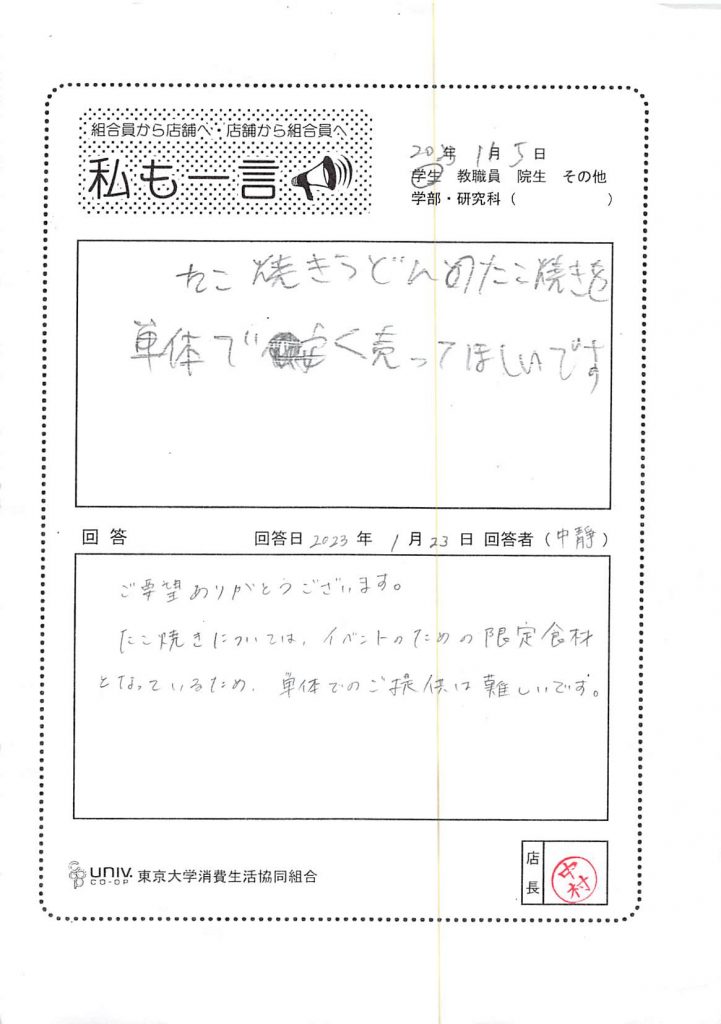 組合員から店舗へ・店舗から組合員へ
私も一言
2023年 1月 5日
学生 教職員 院生 その他
学部・研究科（ ）
たこ焼きうどんのたこ焼きを
単体で安く売ってほしいです
回答 回答日 2023年 1月 23日 回答者（中靜）
ご要望ありがとうございます。
たこ焼きについては、イベントのための限定食材
となっているため、単体でのご提供は難しいです。
UNIV. CO-OP 東京大学消費生活協同組合
店長 中村